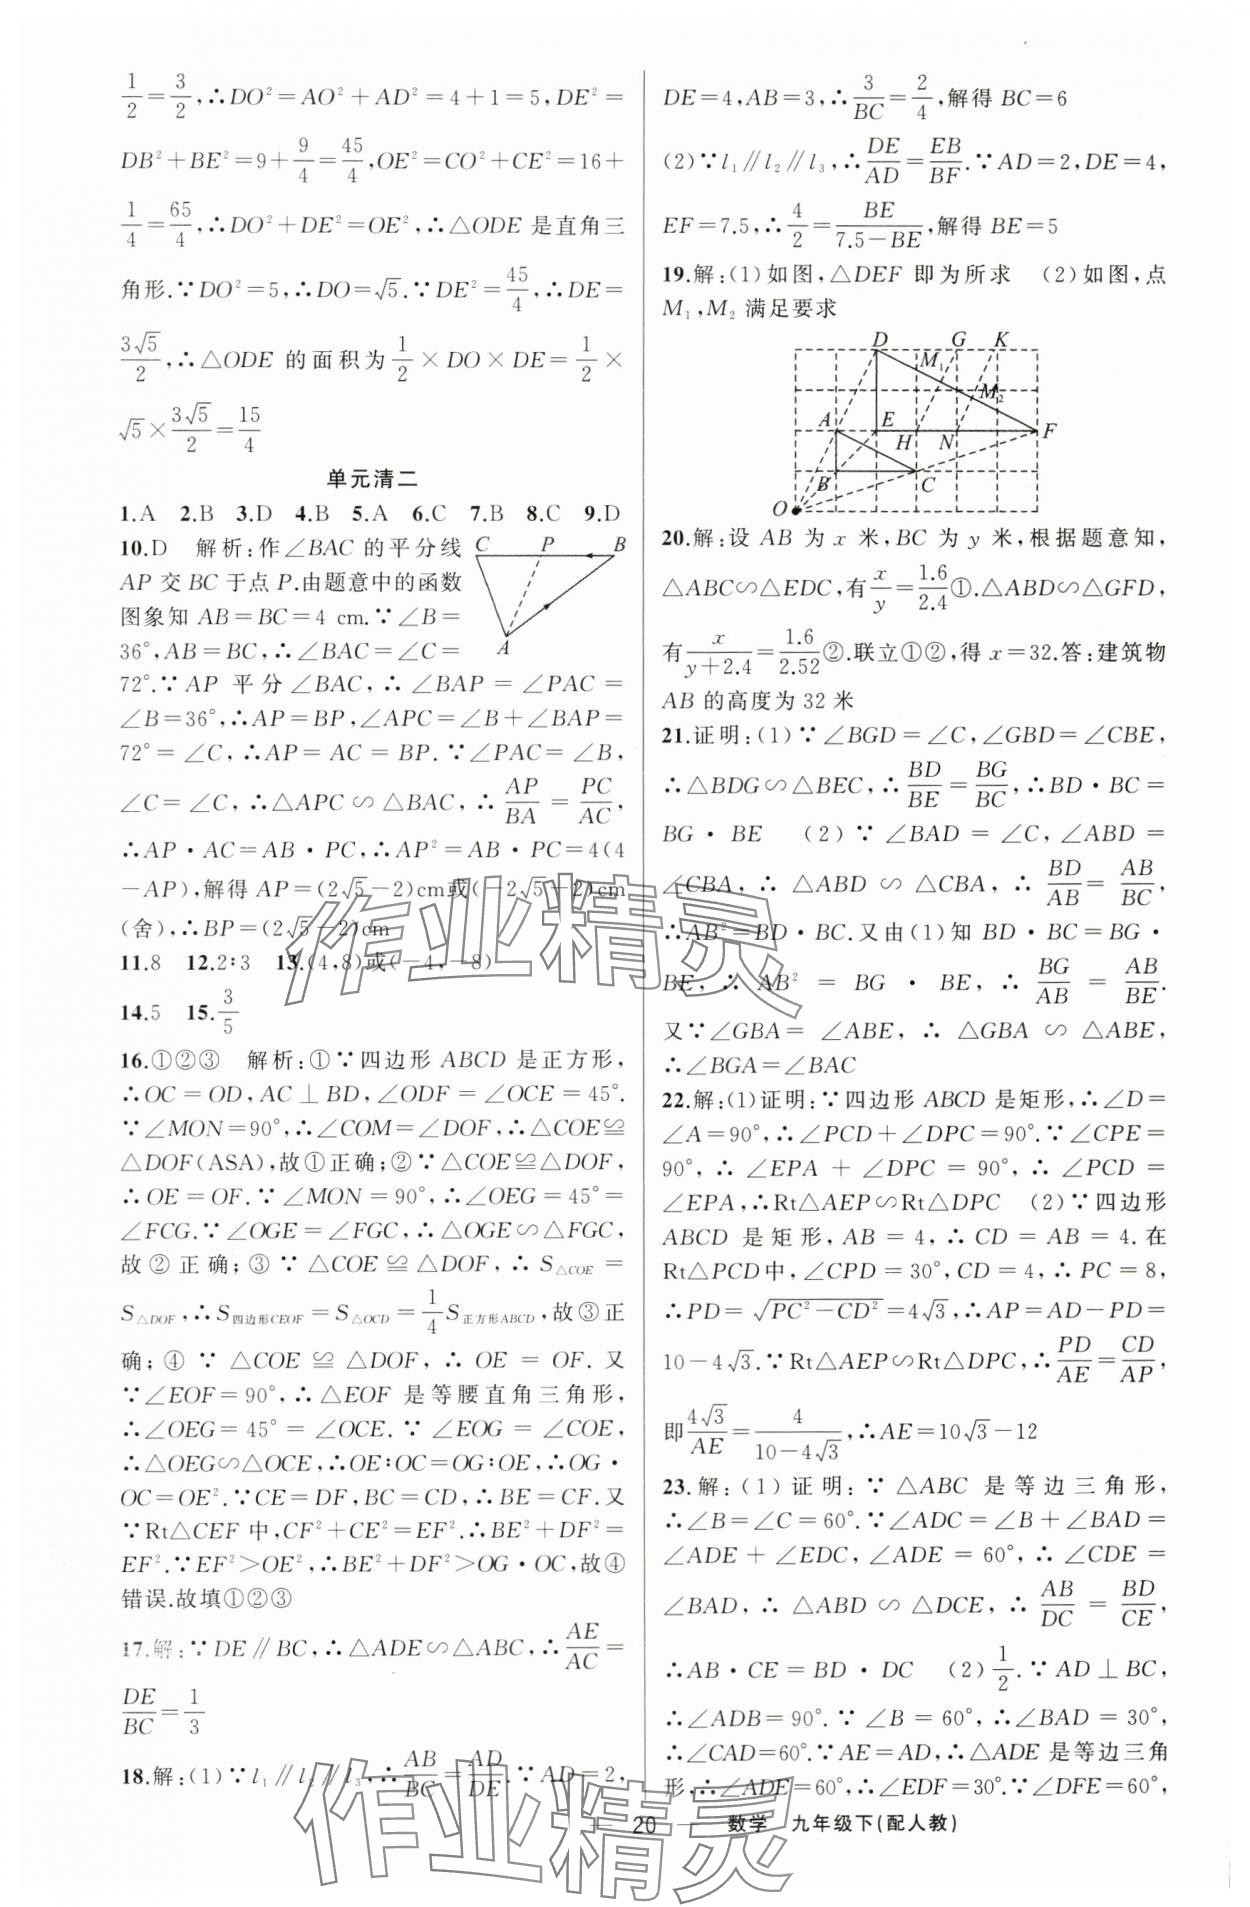 1/2=3/2,∴DO²=AO²+AD²=4+1=5,DE²=
DB²+BE²=9+9/4=45/4,OE²=CO²+CE²=16+
1/4=65/4,∴DO²+DE²=OE²,∴△ODE 是直角三
角形.∵DO²=5,∴DO=√5.∵DE²=45/4,∴DE=
3√5/2,∴△ODE 的面积为1/2×DO×DE=1/2×
√5×3√5/2=15/4
单元清二
1.A 2.B 3.D 4.B 5.A 6.C 7.B 8.C 9.D
10.D 解析:作∠BAC 的平分线
AP 交 BC 于点 P.由题意中的函数
图象知 AB=BC=4 cm.∵∠B=
36°,AB=BC,∴∠BAC=∠C=
C P B
A
72°.∵AP 平分∠BAC,∴∠BAP=∠PAC=
∠B=36°,∴AP=BP,∠APC=∠B+∠BAP=
72°=∠C,∴AP=AC=BP.∵∠PAC=∠B,
∠C=∠C,∴△APC∽△BAC,∴AP/BA=PC/AC,
∴AP·AC=AB·PC,∴AP²=AB·PC=4(4
-AP),解得 AP=(2√5-2)cm或(-2√5-2)cm
(舍),∴BP=(2√5-2)cm
11.8 12.2∶3 13.(4,8)或(-4,-8)
14.5 15.3/5
16.①②③ 解析:①∵四边形 ABCD 是正方形,
∴OC=OD,AC⊥BD,∠ODF=∠OCE=45°.
∵∠MON=90°,∴∠COM=∠DOF,∴△COE≌
△DOF(ASA),故①正确;②∵△COE≌△DOF,
∴OE=OF.∵∠MON=90°,∴∠OEG=45°=
∠FCG.∵∠OGE=∠FGC,∴△OGE∽△FGC,
故②正确;③∵△COE≌△DOF,∴S△COE=
S△DOF,∴S四边形CEOF=S△OCD=1/4S正方形ABCD,故③正
确;④∵△COE≌△DOF,∴OE=OF.又
∵∠EOF=90°,∴△EOF 是等腰直角三角形,
∴∠OEG=45°=∠OCE.∵∠EOG=∠COE,
∴△OEG∽△OCE,∴OE∶OC=OG∶OE,∴OG·
OC=OE².∵CE=DF,BC=CD,∴BE=CF.又
∵Rt△CEF 中,CF²+CE²=EF².∴BE²+DF²=
EF².∵EF²>OE²,∴BE²+DF²>OG·OC,故④
错误.故填①②③
17.解:∵DE∥BC,∴△ADE∽△ABC,∴AE/AC=
DE/BC=1/3
18.解:(1)∵l₁∥l₂∥l₃,∴AB/BC=AD/DE.∵AD=2,
DE=4,AB=3,∴3/BC=2/4,解得 BC=6
(2)∵l₁∥l₂∥l₃,∴DE/AD=EB/BF.∵AD=2,DE=4,
EF=7.5,∴4/2=BE/(7.5-BE),解得 BE=5
19.解:(1)如图,△DEF 即为所求 (2)如图,点
M₁,M₂ 满足要求
D G K
M₁
M₂
A E H N F
B C
O
20.解:设 AB 为 x 米,BC 为 y 米,根据题意知,
△ABC∽△EDC,有x/y=1.6/2.4①.△ABD∽△GFD,
有x/(y+2.4)=1.6/2.52②.联立①②,得 x=32.答:建筑物
AB 的高度为 32 米
21.证明:(1)∵∠BGD=∠C,∠GBD=∠CBE,
∴△BDG∽△BEC,∴BD/BE=BG/BC,∴BD·BC=
BG·BE (2)∵∠BAD=∠C,∠ABD=
∠CBA,∴△ABD∽△CBA,∴BD/AB=AB/BC,
∴AB²=BD·BC.又由(1)知 BD·BC=BG·
BE,∴AB²=BG·BE,∴BG/AB=AB/BE.
又∵∠GBA=∠ABE,∴△GBA∽△ABE,
∴∠BGA=∠BAC
22.解:(1)证明:∵四边形 ABCD 是矩形,∴∠D=
∠A=90°,∴∠PCD+∠DPC=90°.∵∠CPE=
90°,∴∠EPA+∠DPC=90°,∴∠PCD=
∠EPA,∴Rt△AEP∽Rt△DPC (2)∵四边形
ABCD 是矩形,AB=4,∴CD=AB=4.在
Rt△PCD中,∠CPD=30°,CD=4,∴PC=8,
∴PD=√(PC²-CD²)=4√3,∴AP=AD-PD=
10-4√3.∵Rt△AEP∽Rt△DPC,∴PD/AE=CD/AP,
即4√3/AE=4/(10-4√3),∴AE=10√3-12
23.解:(1)证明:∵△ABC 是等边三角形,
∴∠B=∠C=60°.∵∠ADC=∠B+∠BAD=
∠ADE+∠EDC,∠ADE=60°,∴∠CDE=
∠BAD,∴△ABD∽△DCE,∴AB/DC=BD/CE,
∴AB·CE=BD·DC (2)1/2.∵AD⊥BC,
∴∠ADB=90°.∵∠B=60°,∴∠BAD=30°,
∴∠CAD=60°.∵AE=AD,∴△ADE 是等边三角
形,∴∠ADE=60°,∴∠EDF=30°.∵∠DFE=60°,
— 20 — 数学 九年级下(配人教)
作业精灵
作业精灵